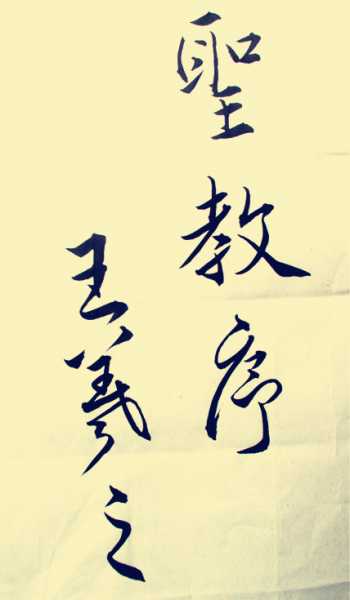 聖教序
王羲之